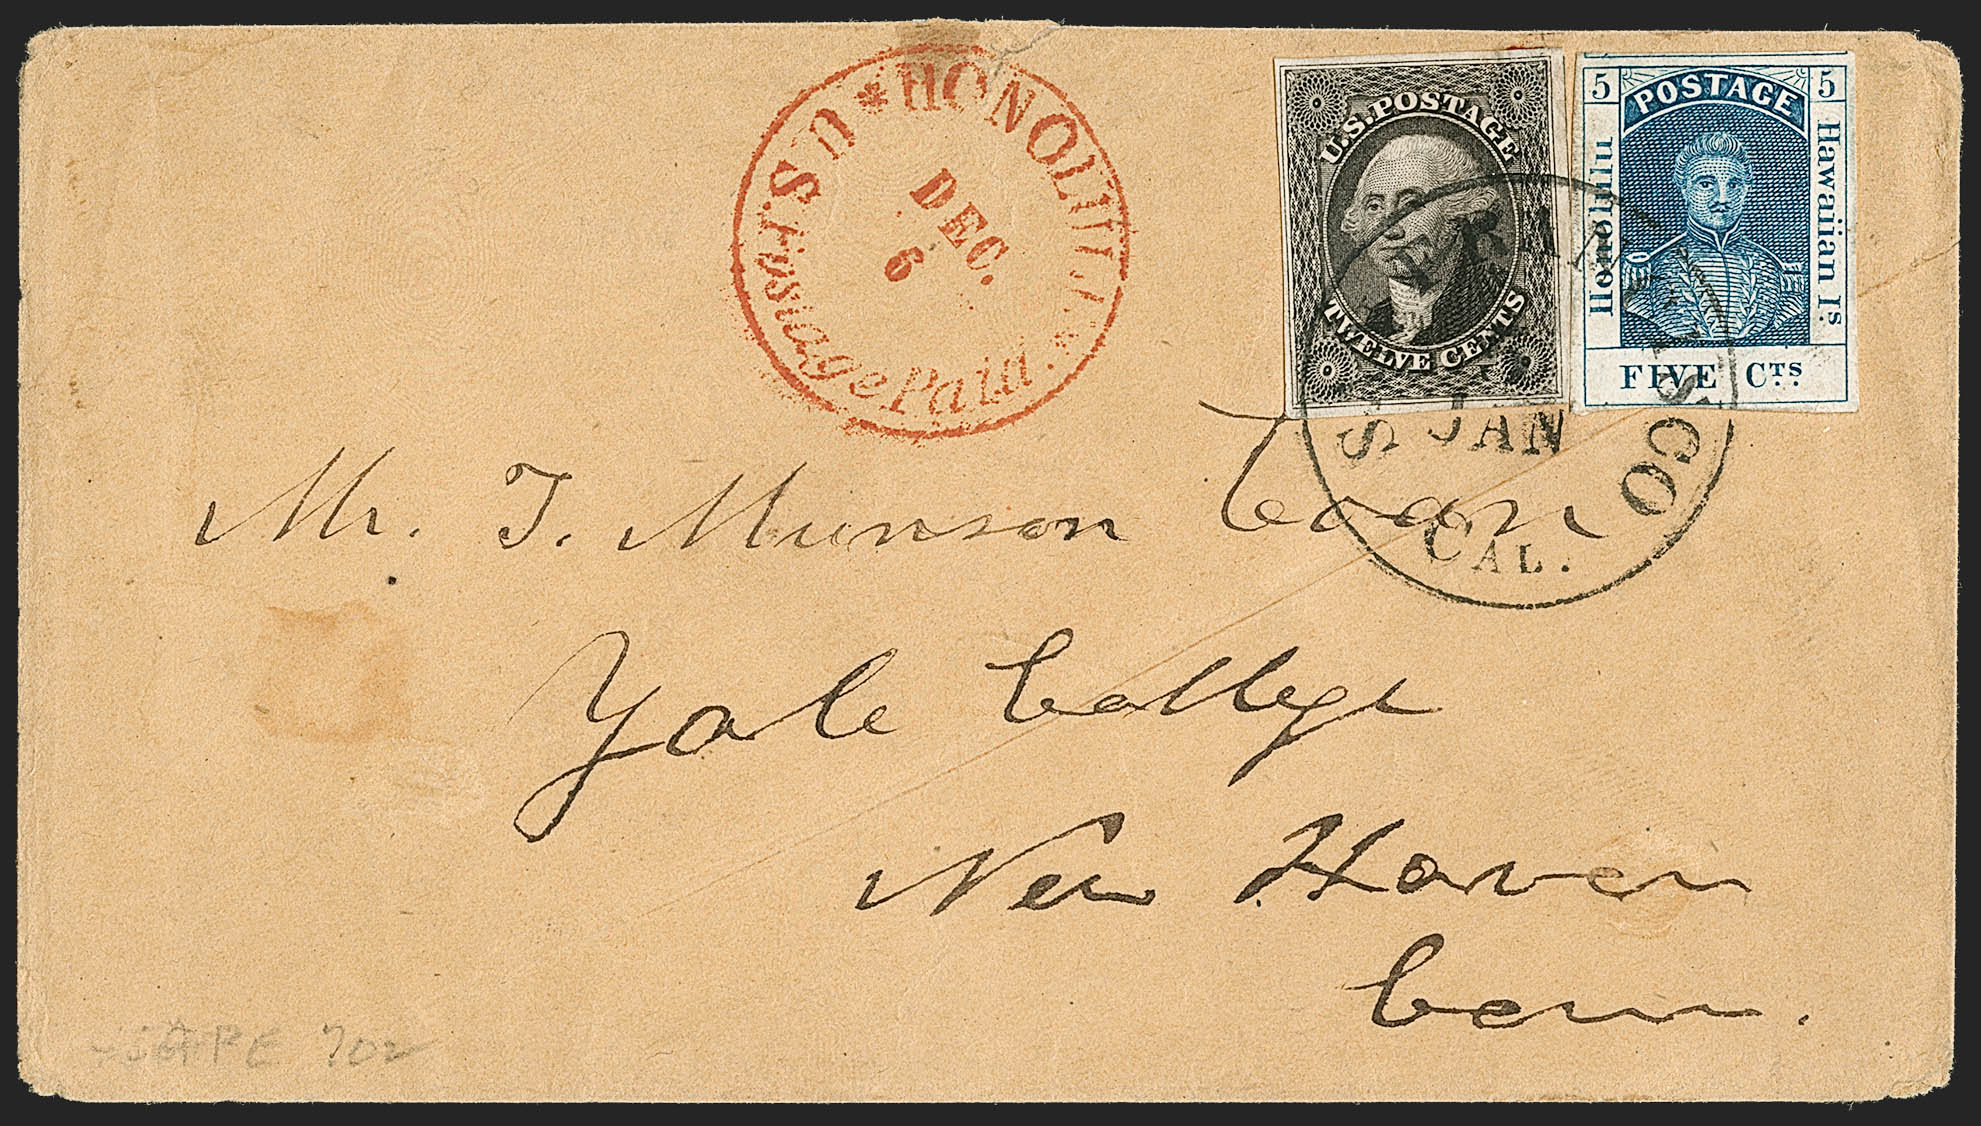 HONOLULU * U.S. Postage Paid.
DEC.
6
U.S. POSTAGE
TWELVE CENTS
5 POSTAGE 5
Honolulu
Hawaiian Is.
FIVE CTS.
SAN FRANCISCO
JAN
CAL.
Mr. T. Munson Coan
Yale College
New Haven
Conn.
702